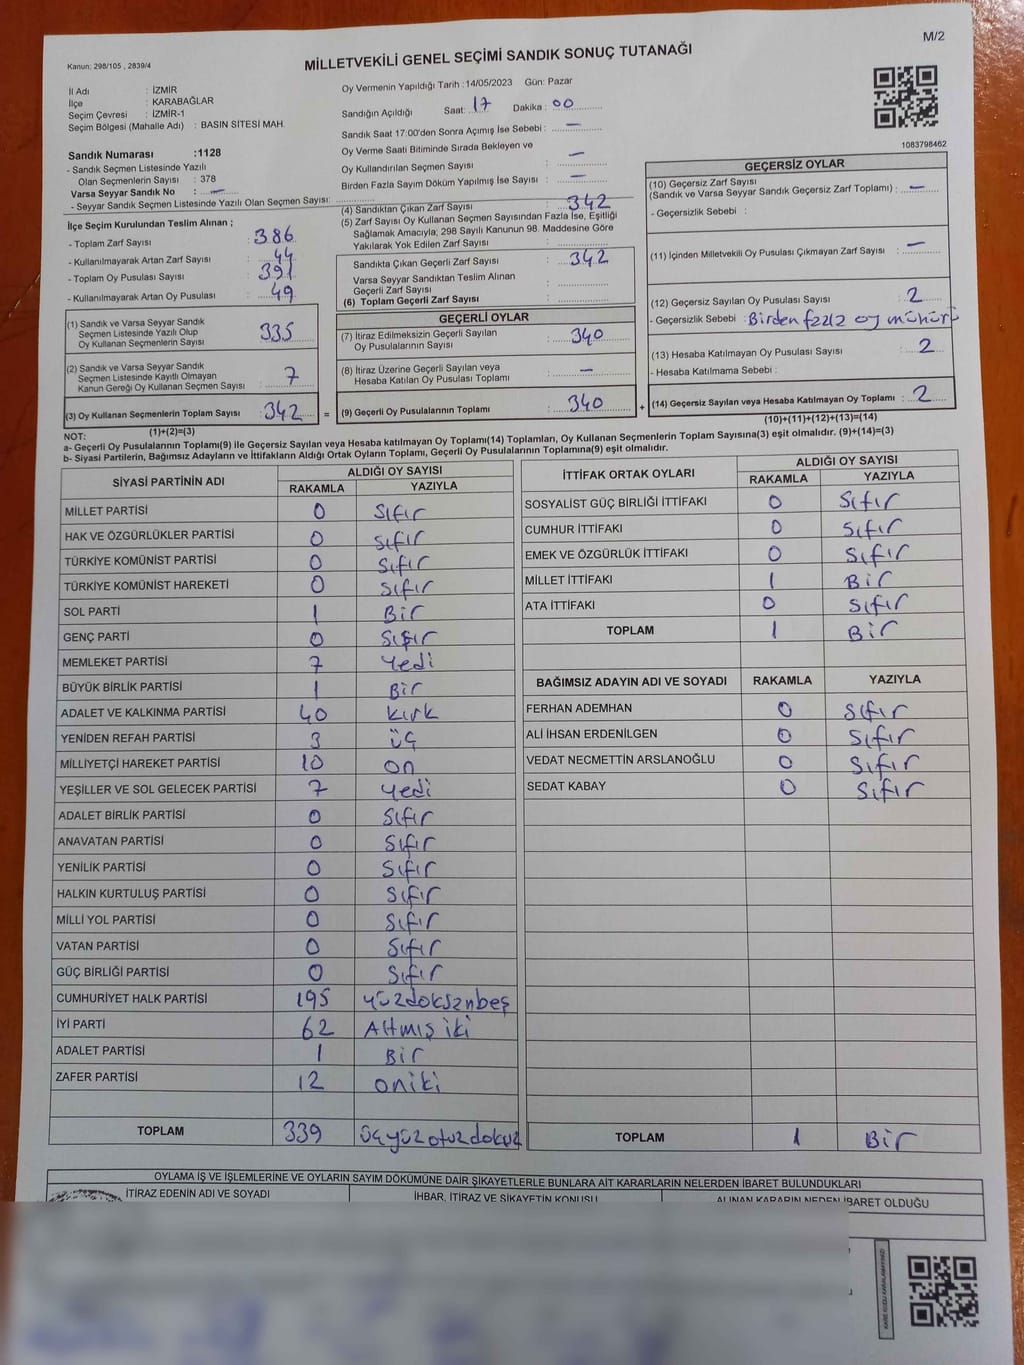 M/2
Kanun: 298/105 , 2839/4
MİLLETVEKİLİ GENEL SEÇİMİ SANDIK SONUÇ TUTANAĞI
İl Adı : İZMİR
İlçe : KARABAĞLAR
Seçim Çevresi : İZMİR-1
Seçim Bölgesi (Mahalle Adı) : BASIN SİTESİ MAH.
Oy Vermenin Yapıldığı Tarih :14/05/2023 Gün: Pazar
Sandığın Açıldığı Saat: 17 Dakika : 00
Sandık Saat 17:00'den Sonra Açımış İse Sebebi : —
Oy Verme Saati Bitiminde Sırada Bekleyen ve
Oy Kullandırılan Seçmen Sayısı : —
Birden Fazla Sayım Döküm Yapılmış İse Sayısı : —
1083798462
Sandık Numarası :1128
- Sandık Seçmen Listesinde Yazılı
Olan Seçmenlerin Sayısı : 378
Varsa Seyyar Sandık No : —
- Seyyar Sandık Seçmen Listesinde Yazılı Olan Seçmen Sayısı:
İlçe Seçim Kurulundan Teslim Alınan ;
- Toplam Zarf Sayısı : 386
- Kullanılmayarak Artan Zarf Sayısı : 44
- Toplam Oy Pusulası Sayısı : 391
- Kullanılmayarak Artan Oy Pusulası : 49
(1) Sandık ve Varsa Seyyar Sandık
Seçmen Listesinde Yazılı Olup
Oy Kullanan Seçmenlerin Sayısı : 335
(2) Sandık ve Varsa Seyyar Sandık
Seçmen Listesinde Kayıtlı Olmayan
Kanun Gereği Oy Kullanan Seçmen Sayısı : 7
(3) Oy Kullanan Seçmenlerin Toplam Sayısı : 342 =
(1)+(2)=(3)
(4) Sandıktan Çıkan Zarf Sayısı : 342
(5) Zarf Sayısı Oy Kullanan Seçmen Sayısından Fazla İse, Eşitliği
Sağlamak Amacıyla, 298 Sayılı Kanunun 98. Maddesine Göre
Yakılarak Yok Edilen Zarf Sayısı :
Sandıkta Çıkan Geçerli Zarf Sayısı : 342
Varsa Seyyar Sandıktan Teslim Alınan
Geçerli Zarf Sayısı :
(6) Toplam Geçerli Zarf Sayısı :
GEÇERLİ OYLAR
(7) İtiraz Edilmeksizin Geçerli Sayılan
Oy Pusulalarının Sayısı : 340
(8) İtiraz Üzerine Geçerli Sayılan veya
Hesaba Katılan Oy Pusulası Toplamı : —
(9) Geçerli Oy Pusulalarının Toplamı : 340 +
GEÇERSİZ OYLAR
(10) Geçersiz Zarf Sayısı
(Sandık ve Varsa Seyyar Sandık Geçersiz Zarf Toplamı) : —
- Geçersizlik Sebebi :
(11) İçinden Milletvekili Oy Pusulası Çıkmayan Zarf Sayısı : —
(12) Geçersiz Sayılan Oy Pusulası Sayısı : 2
- Geçersizlik Sebebi : Birden fazla oy mühürü
(13) Hesaba Katılmayan Oy Pusulası Sayısı : 2
- Hesaba Katılmama Sebebi :
(14) Geçersiz Sayılan veya Hesaba Katılmayan Oy Toplamı : 2
(10)+(11)+(12)+(13)=(14)
NOT:
a- Geçerli Oy Pusulalarının Toplamı(9) ile Geçersiz Sayılan veya Hesaba katılmayan Oy Toplamı(14) Toplamları, Oy Kullanan Seçmenlerin Toplam Sayısına(3) eşit olmalıdır. (9)+(14)=(3)
b- Siyasi Partilerin, Bağımsız Adayların ve İttifakların Aldığı Ortak Oyların Toplamı, Geçerli Oy Pusulalarının Toplamına(9) eşit olmalıdır.
SİYASİ PARTİNİN ADI ALDIĞI OY SAYISI
RAKAMLA YAZIYLA
MİLLET PARTİSİ 0 Sıfır
HAK VE ÖZGÜRLÜKLER PARTİSİ 0 Sıfır
TÜRKİYE KOMÜNİST PARTİSİ 0 Sıfır
TÜRKİYE KOMÜNİST HAREKETİ 0 Sıfır
SOL PARTİ 1 Bir
GENÇ PARTİ 0 Sıfır
MEMLEKET PARTİSİ 7 Yedi
BÜYÜK BİRLİK PARTİSİ 1 Bir
ADALET VE KALKINMA PARTİSİ 40 Kırk
YENİDEN REFAH PARTİSİ 3 üç
MİLLİYETÇİ HAREKET PARTİSİ 10 on
YEŞİLLER VE SOL GELECEK PARTİSİ 7 Yedi
ADALET BİRLİK PARTİSİ 0 Sıfır
ANAVATAN PARTİSİ 0 Sıfır
YENİLİK PARTİSİ 0 Sıfır
HALKIN KURTULUŞ PARTİSİ 0 Sıfır
MİLLİ YOL PARTİSİ 0 Sıfır
VATAN PARTİSİ 0 Sıfır
GÜÇ BİRLİĞİ PARTİSİ 0 Sıfır
CUMHURİYET HALK PARTİSİ 195 yüzdoksanbeş
İYİ PARTİ 62 Altmış iki
ADALET PARTİSİ 1 Bir
ZAFER PARTİSİ 12 oniki
TOPLAM 339 üçyüzotuzdokuz
İTTİFAK ORTAK OYLARI ALDIĞI OY SAYISI
RAKAMLA YAZIYLA
SOSYALİST GÜÇ BİRLİĞİ İTTİFAKI 0 Sıfır
CUMHUR İTTİFAKI 0 Sıfır
EMEK VE ÖZGÜRLÜK İTTİFAKI 0 Sıfır
MİLLET İTTİFAKI 1 Bir
ATA İTTİFAKI 0 Sıfır
TOPLAM 1 Bir
BAĞIMSIZ ADAYIN ADI VE SOYADI RAKAMLA YAZIYLA
FERHAN ADEMHAN 0 Sıfır
ALİ İHSAN ERDENİLGEN 0 Sıfır
VEDAT NECMETTİN ARSLANOĞLU 0 Sıfır
SEDAT KABAY 0 Sıfır
TOPLAM 1 Bir
OYLAMA İŞ VE İŞLEMLERİNE VE OYLARIN SAYIM DÖKÜMÜNE DAİR ŞİKAYETLERLE BUNLARA AİT KARARLARIN NELERDEN İBARET BULUNDUKLARI
İTİRAZ EDENİN ADI VE SOYADI İHBAR, İTİRAZ VE ŞİKAYETİN KONUSU ALINAN KARARIN NEDEN İBARET OLDUĞU